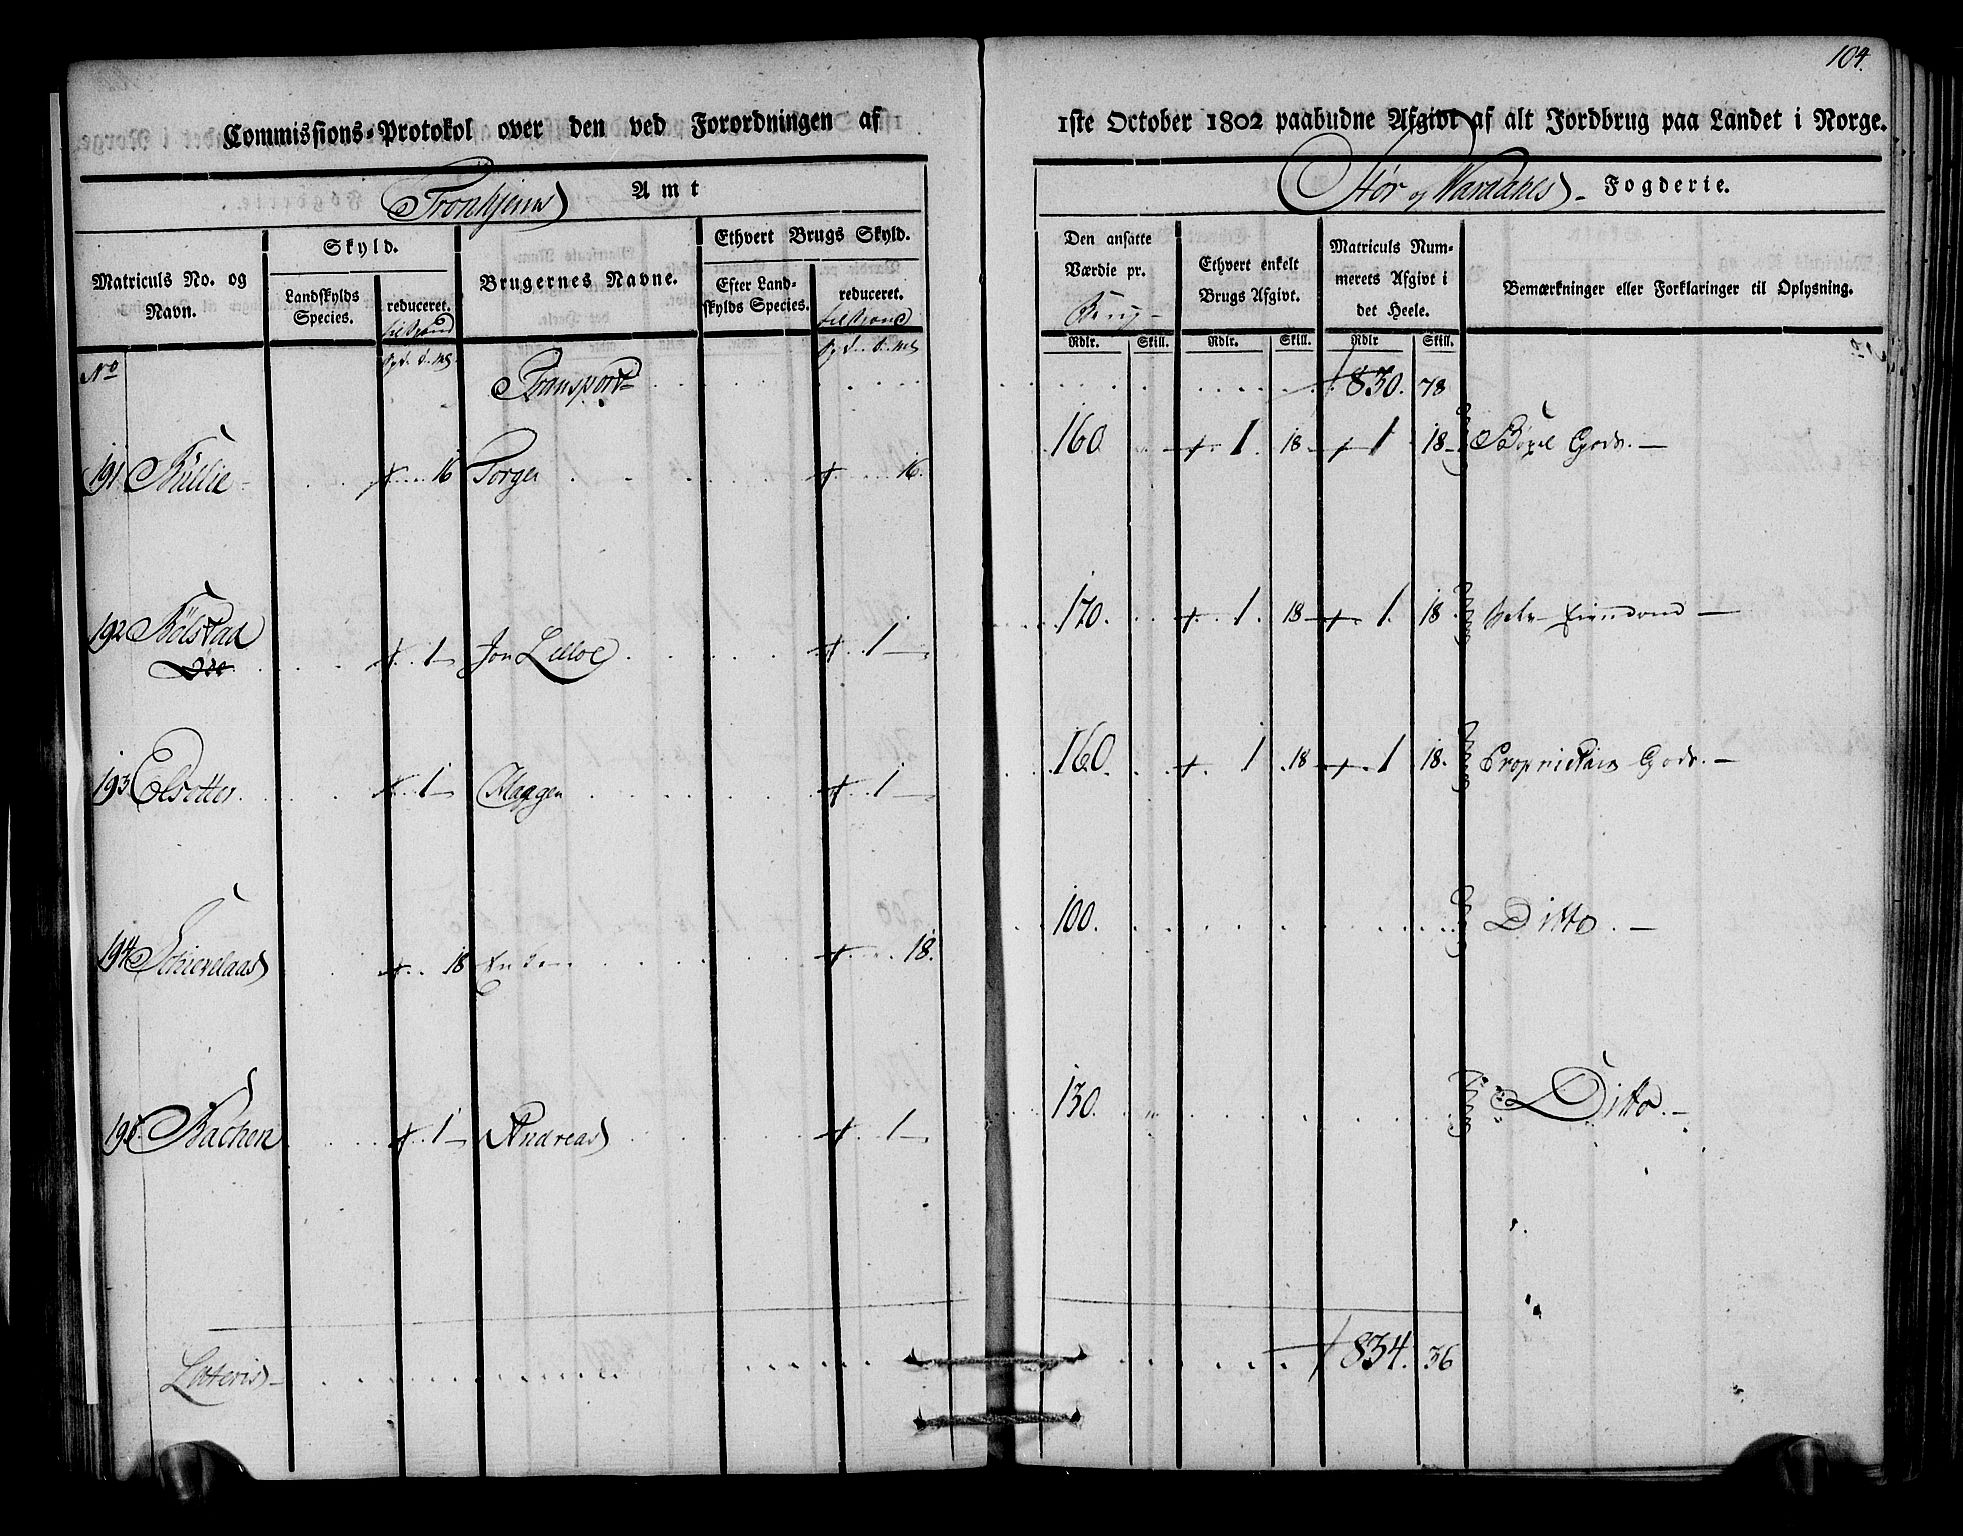 104.
Commissions-Protokol over den ved Forordningen af 1ste October 1802 paabudne Afgivt af alt Jordbrug paa Landet i Norge.
Tronhjems Amt
Stør og Værdahls Fogderie.
Matriculs No. og Navn.
Skyld.
Landskylds Species.
reduceret.
Brugernes Navne.
Ethvert Brugs Skyld.
Efter Landskylds Species.
reduceret.
Den ansatte Værdie pr.
Brug
Ethvert enkelt Brugs Afgivt.
Matriculs Nummerets Afgivt i det Heele.
Bemærkninger eller Forklaringer til Oplysning.
Rdlr. Skill. Rdlr. Skill. Rdlr Skill.
No
Transport 830. 78
191 16 Torger 16. 160 1 18 1 18 Bøxel Gods.
192 Bölstad 1 Jon 1 170. 1 18 1 18
193 Elsetter 1 1 160 1 18 1 18. Proprietair Gods.
194 18 18. 100. Ditto.
195 Bachen 1 Andreas 1 130. Ditto.
Lateris 834. 36